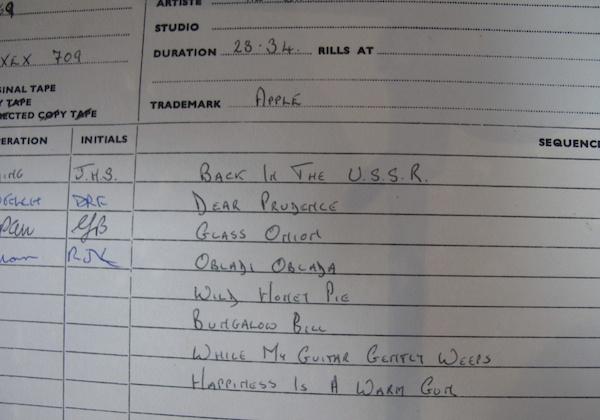 ARTISTE
STUDIO
XEX 709
DURATION 23.34. RILLS AT
INAL TAPE
Y TAPE
ECTED COPY TAPE
TRADEMARK APPLE
ERATION INITIALS SEQUENCE
ING J.H.S. BACK IN THE U.S.S.R.
DEAR PRUDENCE
GLASS ONION
OBLADI OBLADA
WILD HONEY PIE
BUNGALOW BILL
WHILE MY GUITAR GENTLY WEEPS
HAPPINESS IS A WARM GUN